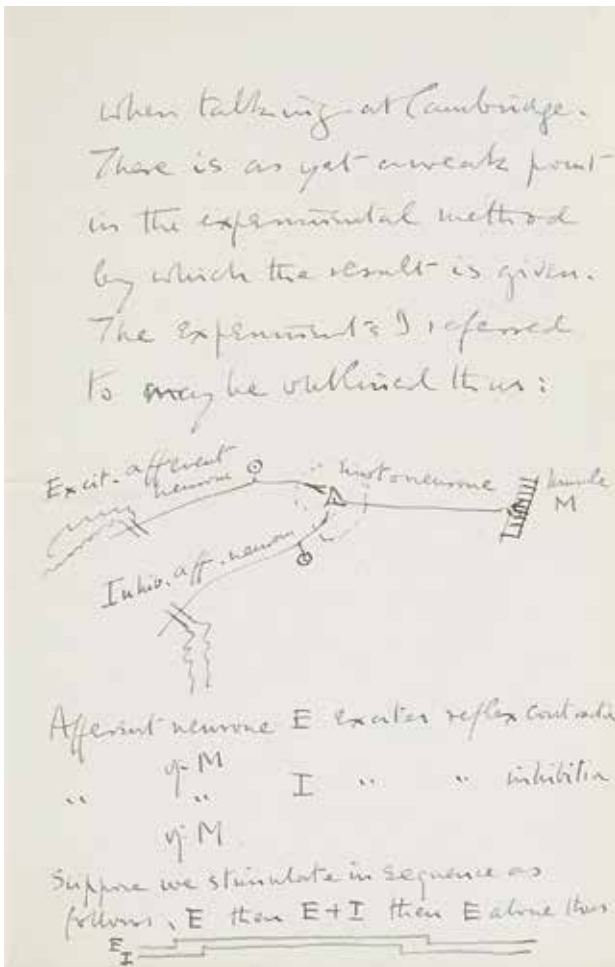 when talking at Cambridge.
There is as yet a weak point
in the experimental method
by which the result is given.
The experiments I referred
to may be outlined thus:
Excit. afferent
neurone
motoneurone
muscle
M
Inhib. aff. neurone
Afferent neurone E excites reflex contractn
of M
" " I " " inhibition
of M
Suppose we stimulate in sequence as
follows, E then E + I then E alone thus
E
I